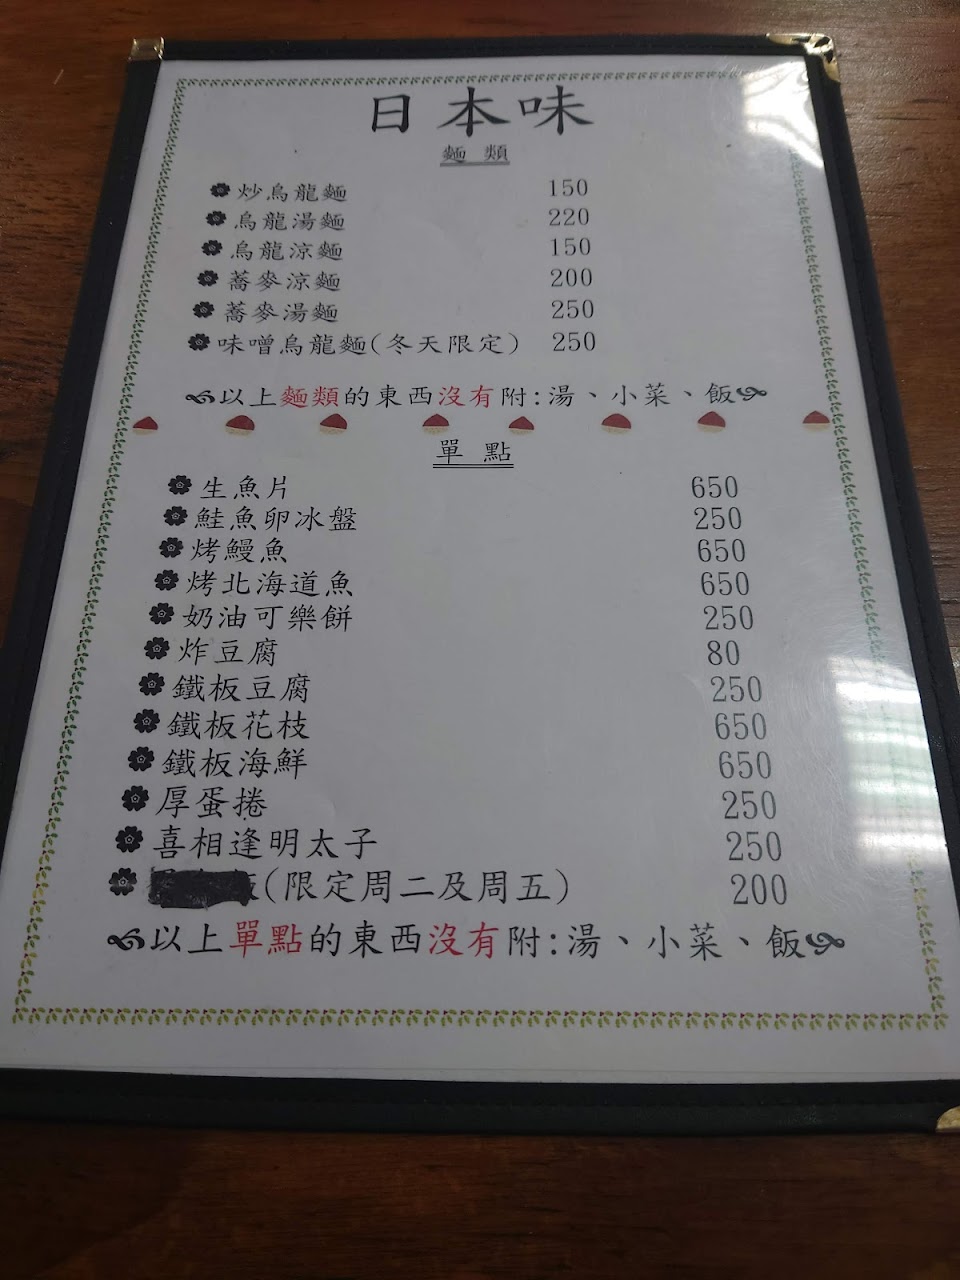 日本味
麵 類
炒烏龍麵 150
烏龍湯麵 220
烏龍涼麵 150
蕎麥涼麵 200
蕎麥湯麵 250
味噌烏龍麵(冬天限定) 250
以上麵類的東西沒有附:湯、小菜、飯
單 點
生魚片 650
鮭魚卵冰盤 250
烤鰻魚 650
烤北海道魚 650
奶油可樂餅 250
炸豆腐 80
鐵板豆腐 250
鐵板花枝 650
鐵板海鮮 650
厚蛋捲 250
喜相逢明太子 250
(限定周二及周五) 200
以上單點的東西沒有附:湯、小菜、飯